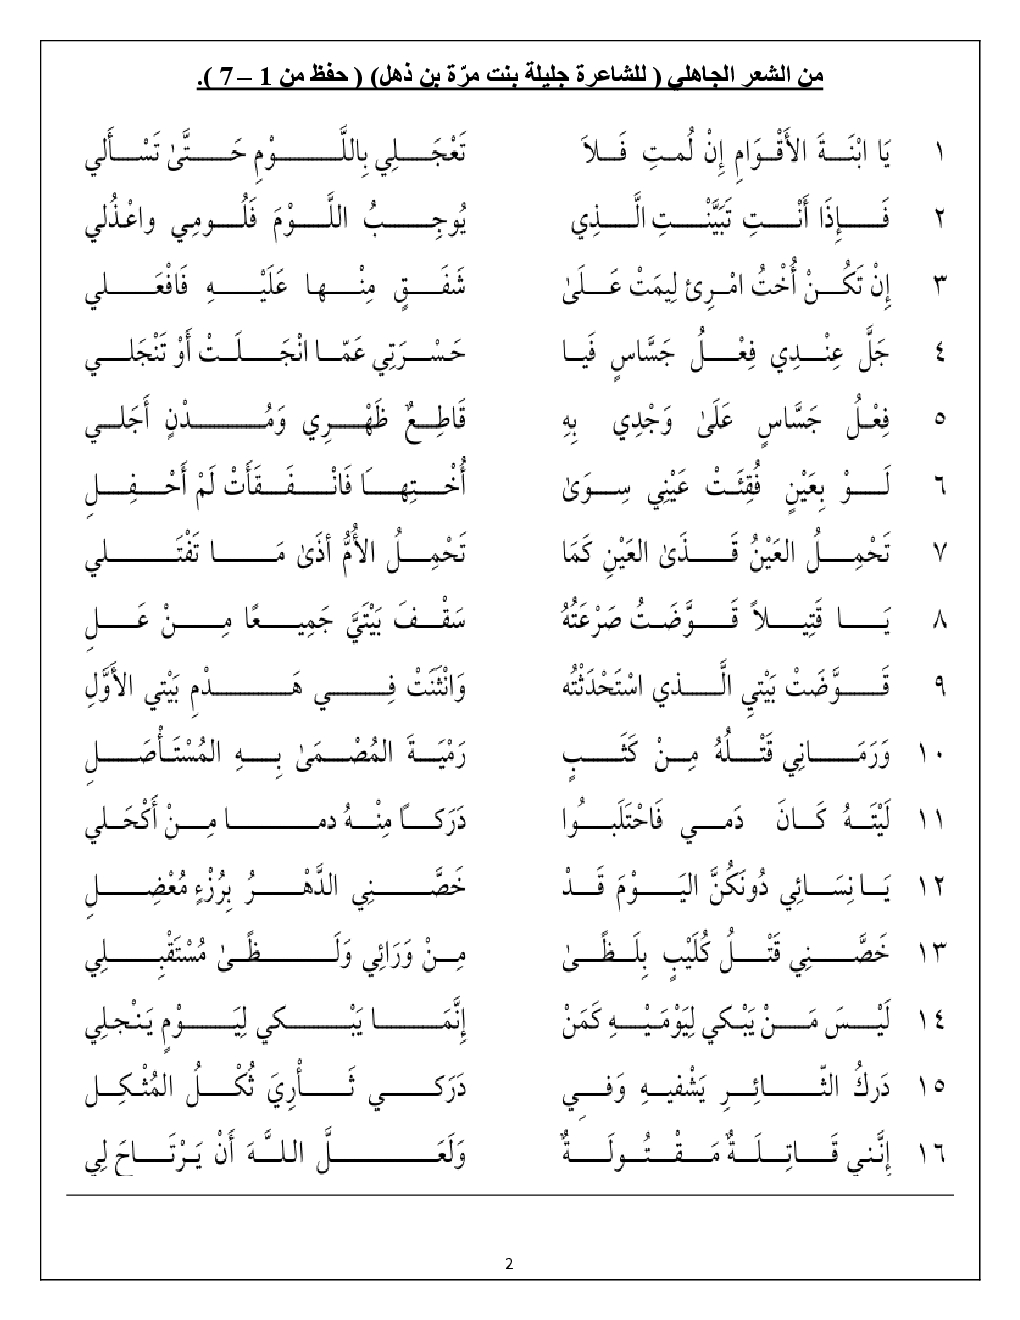 من الشعر الجاهلي ( للشاعرة جليلة بنت مرّة بن ذهل) ( حفظ من 1 – 7 ).
١ يَا ابْنَةَ الأَقْوَامِ إِنْ لُمتِ فَلاَ تَعْجَلِي بِاللَّوْمِ حَتَّىٰ تَسْأَلي
٢ فَإِذَا أَنْتِ تَبَيَّنْتِ الَّذِي يُوجِبُ اللَّوْمَ فَلُومِي واعْذُلي
٣ إِنْ تَكُنْ أُخْتُ امْرِئ لِيمَتْ عَلَىٰ شَفَقٍ مِنْها عَلَيْهِ فَافْعَلي
٤ جَلَّ عِنْدِي فِعْلُ جَسَّاسٍ فَيا حَسْرَتِي عَمّا انْجَلَتْ أَوْ تَنْجَلي
٥ فِعْلُ جَسَّاسٍ عَلَىٰ وَجْدِي بِهِ قَاطِعٌ ظَهْرِي وَمُدْنٍ أَجَلي
٦ لَوْ بِعَيْنٍ فُقِئَتْ عَيْنِي سِوَىٰ أُخْتِهاَ فَانْفَقَأَتْ لَمْ أَحْفِلِ
٧ تَحْمِلُ العَيْنُ قَذَىٰ العَيْنِ كَمَا تَحْمِلُ الأُمُّ أذَىٰ مَا تَفْتَلي
٨ يَا قَتِيلاً قَوَّضَتْ صَرْعَتُهُ سَقْفَ بَيْتَيَّ جَمِيعًا مِنْ عَلِ
٩ قَوَّضَتْ بَيْتِي الَّذي اسْتَحْدَثْتُه وَانْثَنَتْ فِي هَدْمِ بَيْتِي الأَوَّلِ
١٠ وَرَمَانِي قَتْلُهُ مِنْ كَثَبٍ رَمْيَةَ المُصْمَىٰ بِهِ المُسْتَأْصَلِ
١١ لَيْتَهُ كَانَ دَمي فَاحْتَلَبُوا دَرَكاً مِنْهُ دما مِنْ أَكْحَلي
١٢ يَا نِسَائِي دُونَكُنَّ اليَوْمَ قَدْ خَصَّنِي الدَّهْرُ بِرُزْءٍ مُعْضِلِ
١٣ خَصَّنِي قَتْلُ كُلَيْبٍ بِلَظًىٰ مِنْ وَرَائِي وَلَظًىٰ مُسْتَقْبِلِي
١٤ لَيْسَ مَنْ يَبْكي لِيَوْمَيْهِ كَمَنْ إِنَّمَا يَبْكي لِيَوْمٍ يَنْجلِي
١٥ دَركُ الثّائِرِ يَشْفيهِ وَفي دَرَكي ثَأْرِيَ ثُكْلُ المُثْكِلِ
١٦ إِنَّني قَاتِلَةٌ مَقْتُولَةٌ وَلَعَلَّ اللهَ أَنْ يَرْتَاحَ لِي
2